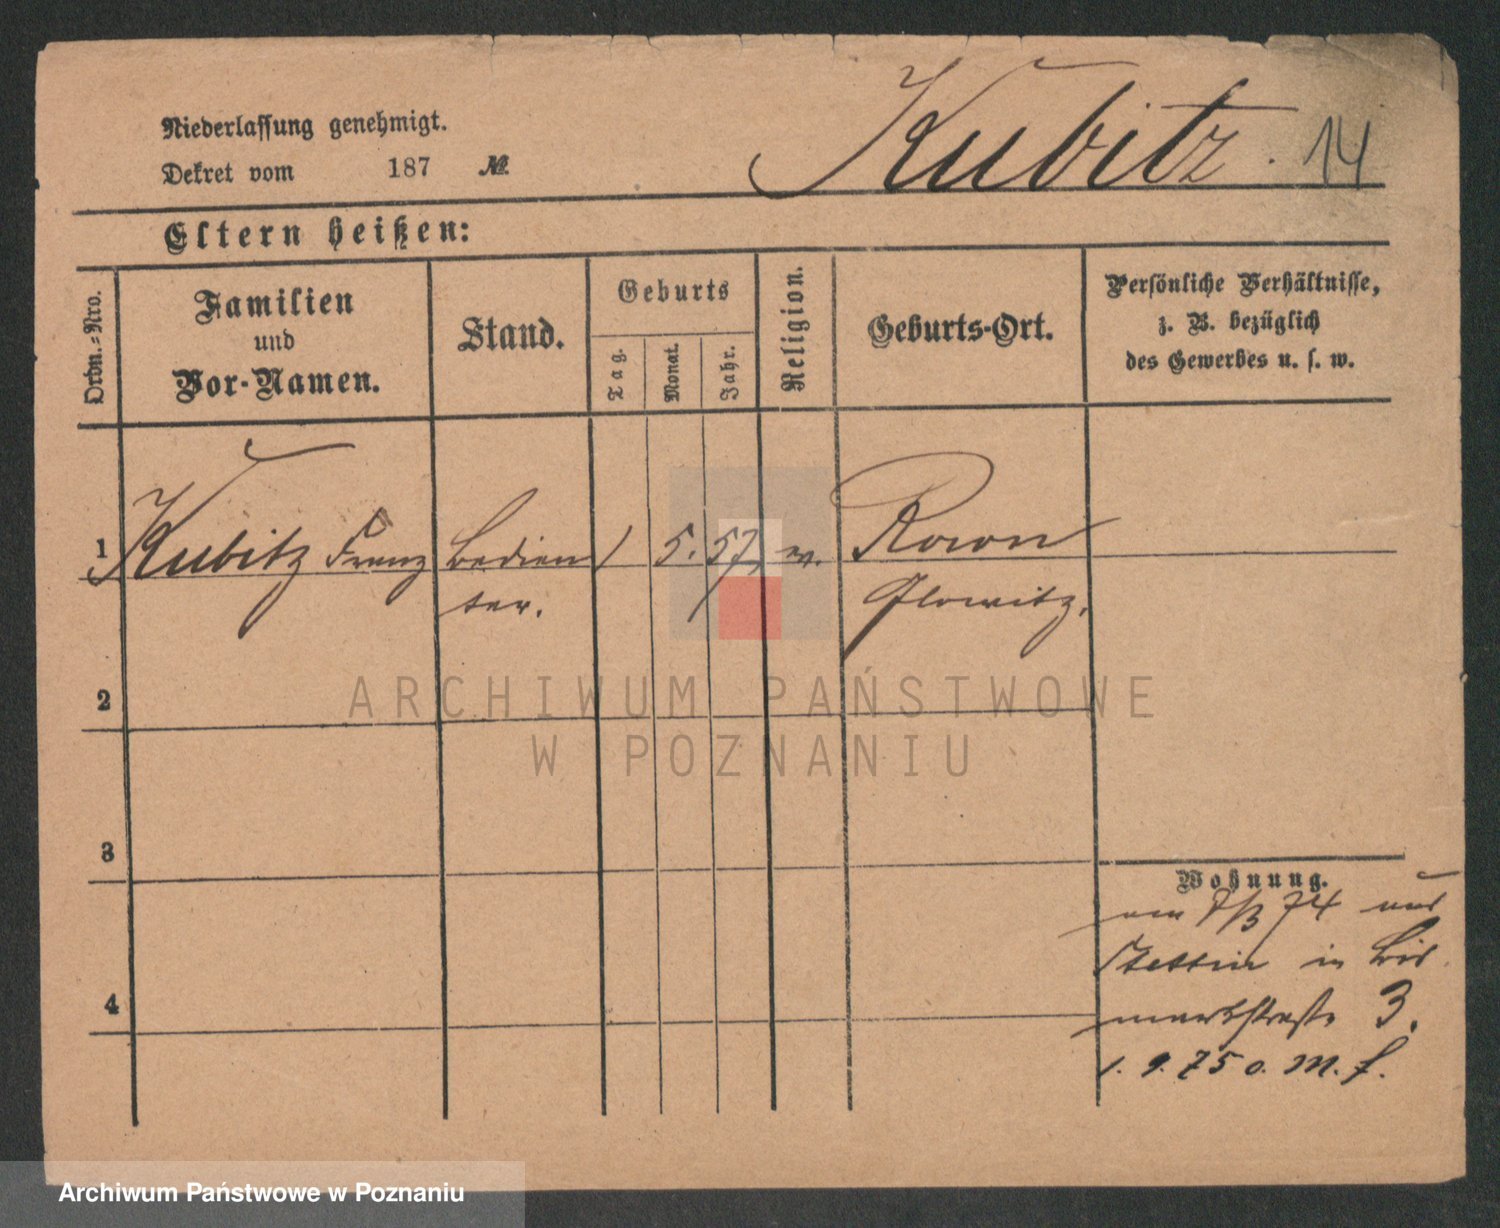 Kubitz. 14
Niederlassung genehmigt.
Dekret vom 187 №
Eltern heißen:
Ordn.-Nro.
Familien
und
Vor-Namen.
Stand.
Geburts
Tag.
Monat.
Jahr.
Religion.
Geburts-Ort.
Persönliche Verhältnisse,
z. B. bezüglich
des Gewerbes u. s. w.
1 Kubitz Franz Bedien 1 5. 57,
ter.
2
3
4
Wohnung.
74 aus
Stettin in Bis
markstraße 3.
1. 9. 75 o. M. f.
ARCHIWUM PAŃSTWOWE
W POZNANIU
Archiwum Państwowe w Poznaniu